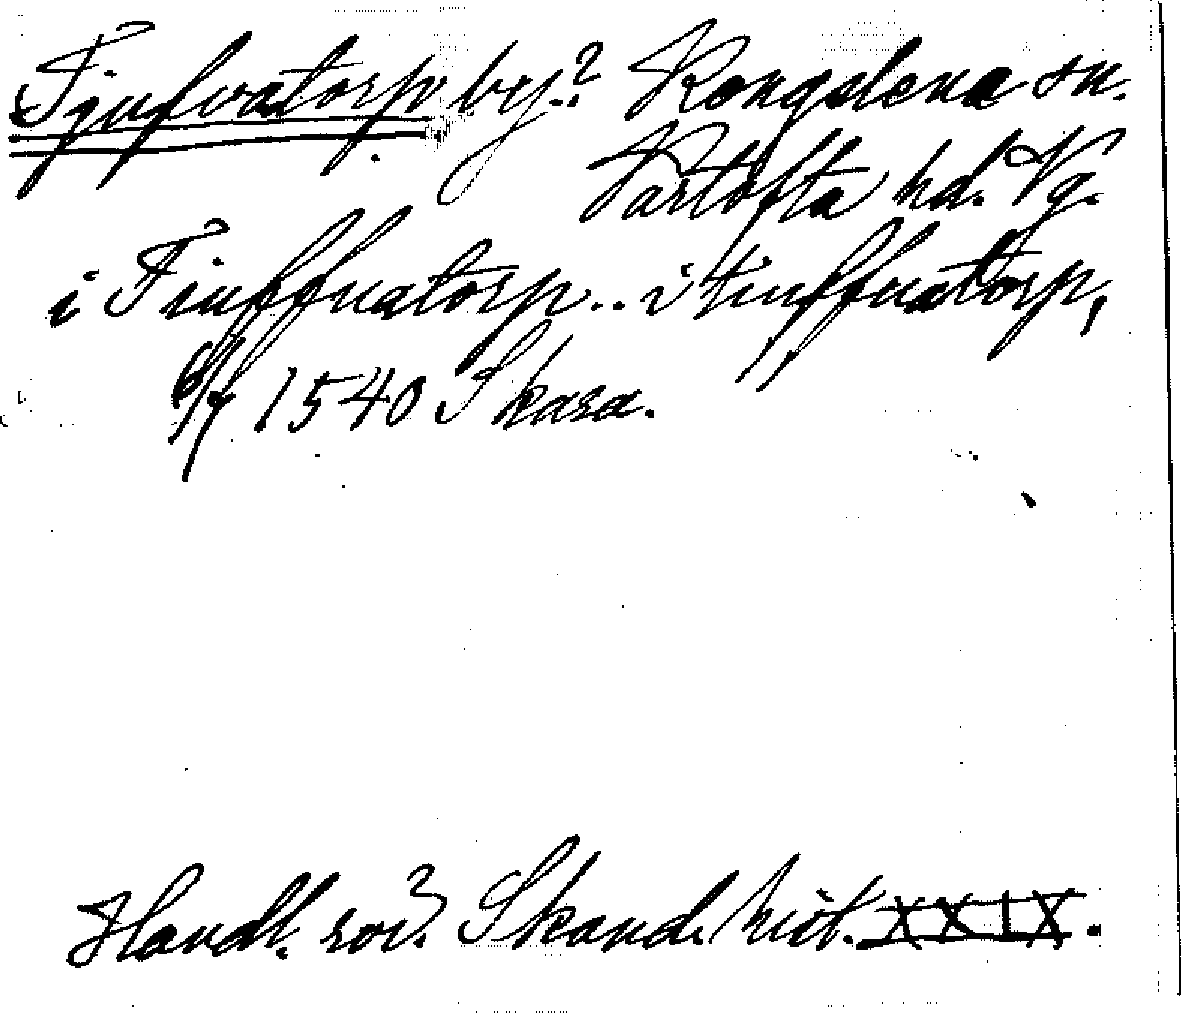 Tjufvatorp by? Kongslena sn.
Vartofta hd. Vg.
i Tiuffuatorp .. i tiuffuatorp,
6/7 1540 Skara.
Handl. rör. Skand. hist. XXIX.